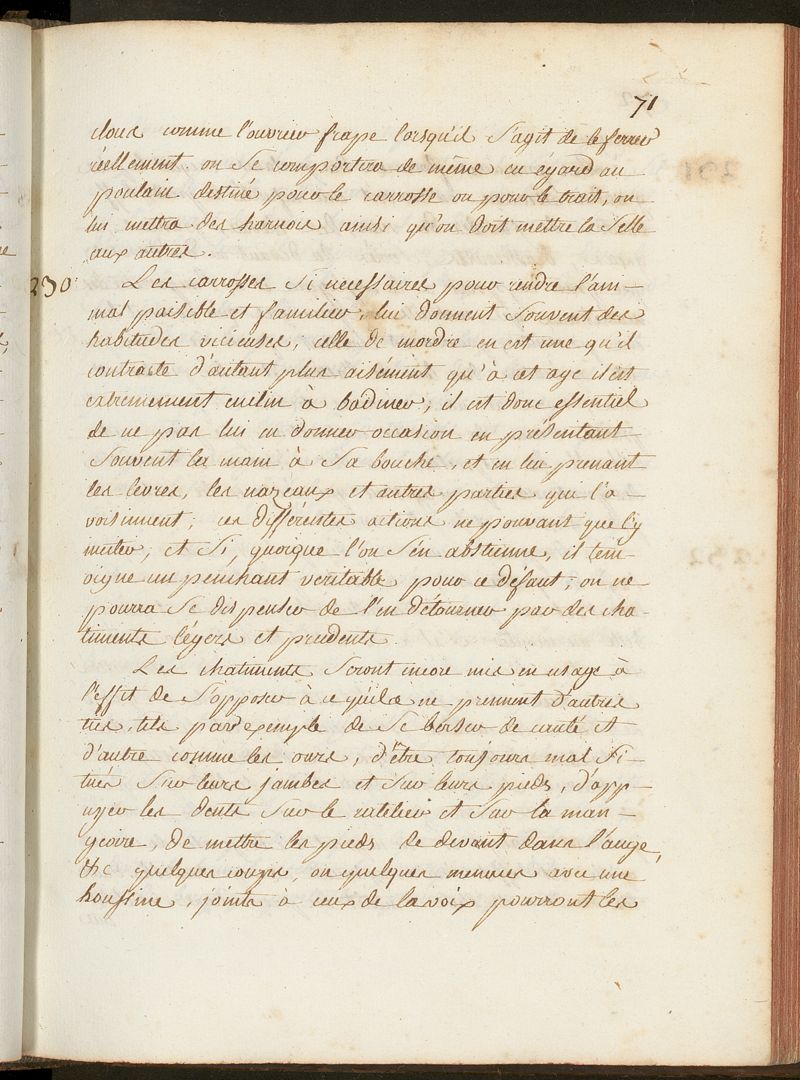 71
cloux comme l'ouvrier frape lorsqu'il s'agit de le ferrer
réellement. on se comportera de même eu égard au
poulain destiné pour le carrosse ou pour le trait, on
lui mettra des harnois ainsi qu'on doit mettre la selle
aux autres.
230. Les carrosses si necessaires pour rendre l'ani-
mal paisible et familier, lui donnent souvent des
habitudes vicieuses, celle de mordre en est une qu'il
contracte d'autant plus aisément qu'à cet age il est
extremement enclin à badiner, il est donc essentiel
de ne pas lui en donner occasion en présentant
souvent la main à sa bouche, et en lui prenant
les levres, les nazeaux et autres parties qui l'a-
voisinnent, ces différentes actions ne pouvant que l'y
inviter, et si, quoique l'on s'en abstienne, il tem-
oigne un penchant veritable pour ce défaut, on ne
pourra se dispenser de l'en détourner par des cha-
timents légers et prudents.
Les chatiments seront encore mis en usage à
l'effet de s'opposer à ce qu'ils ne prennent d'autres
tics, tels par exemple de se bercer de cauté et
d'autre comme les ours, d'être toujours mal si-
tués sur leurs jambes et sur leurs pieds, d'app-
uyer les dents sur le ratelier et sur la man-
geoire, de mettre les pieds de devant dans l'auge,
&c quelques coups, ou quelques menaces avec une
houssine, joints à ceux de la voix pourront les